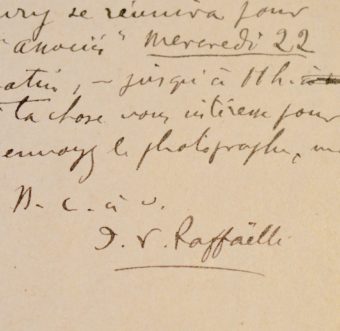 ury se réunira pour
"anciens" Mercredi 22
matin, – jusqu'à 11 h.
si la chose vous intéresse pour
envoyez le photographe,
N. c. à v.
J. F. Raffaëlli